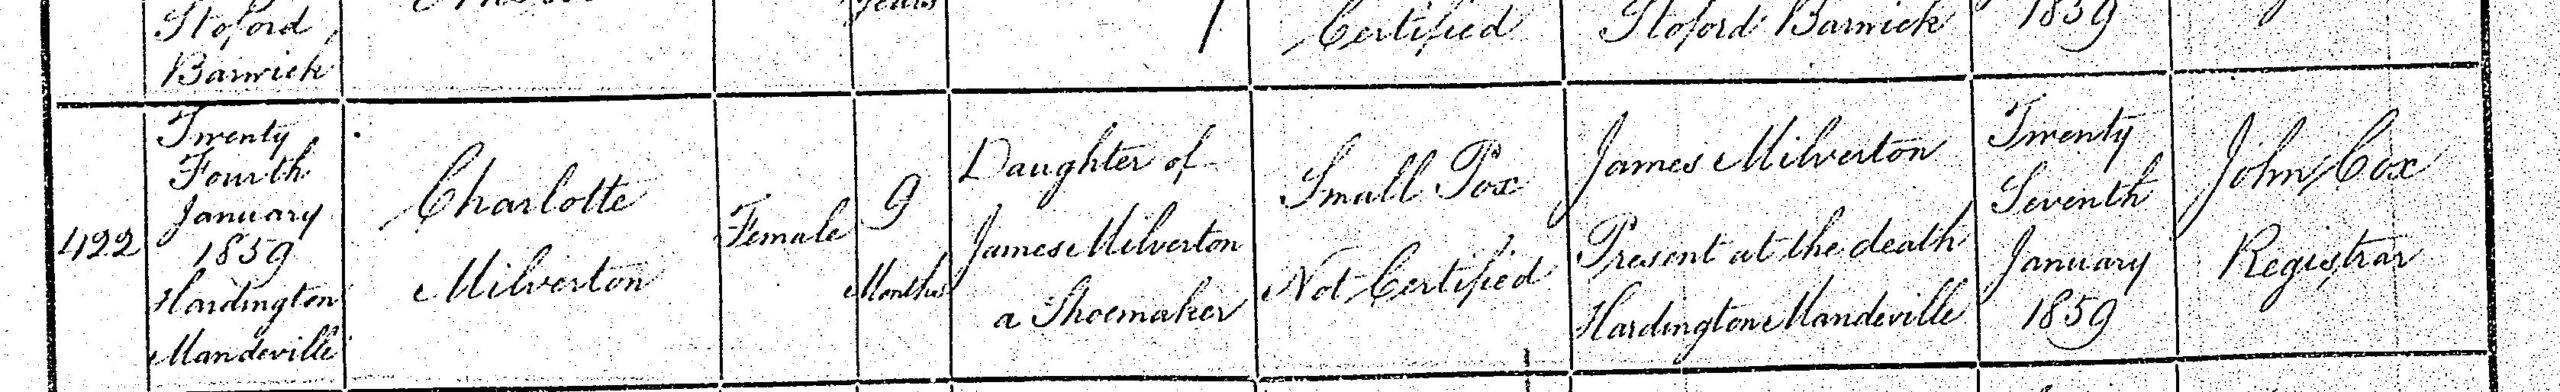 Stoford
Barwick
years
Certified
Stoford Barwick
1859
422
Twenty
Fourth
January
1859
Hardington
Mandeville
Charlotte
Milverton
Female
9
Months
Daughter of
James Milverton
a Shoemaker
Small Pox
Not Certified
James Milverton
Present at the death
Hardington Mandeville
Twenty
Seventh
January
1859
John Cox
Registrar